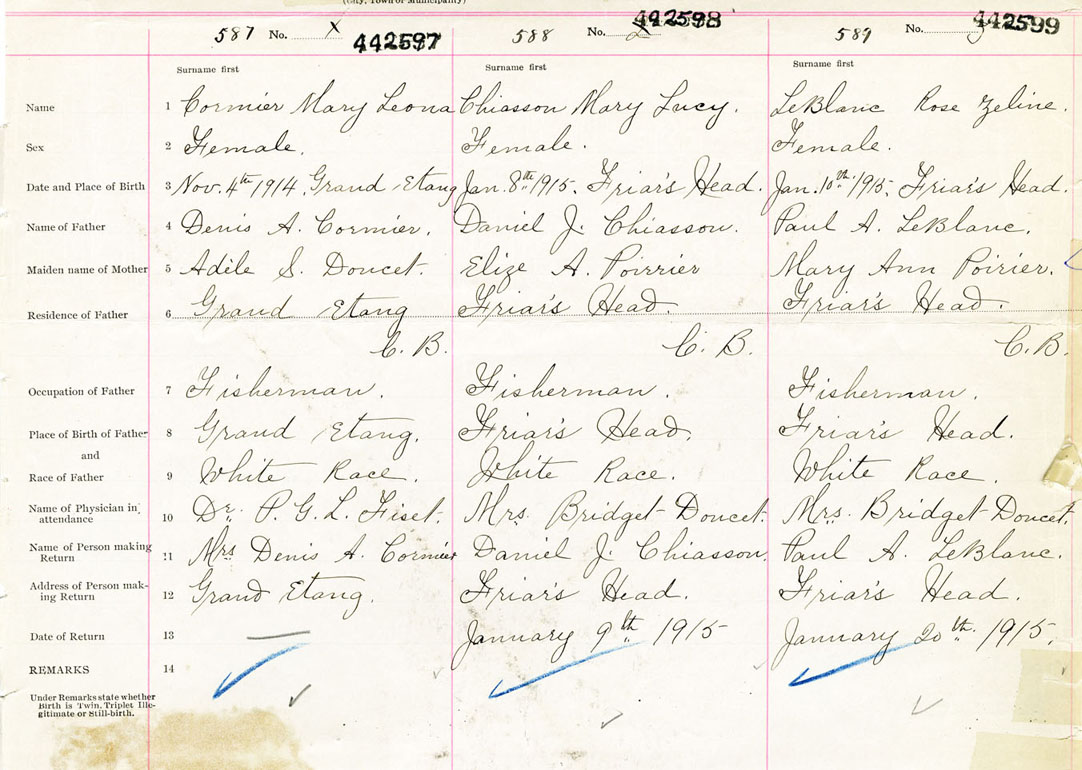 (City, Town or Municipality)
587 No. X 442597 588 No. 2 442598 589 No. 3 442599
Surname first Surname first Surname first
Name 1 Cormier Mary Leona Chiasson Mary Lucy. LeBlanc Rose Zeline.
Sex 2 Female. Female. Female.
Date and Place of Birth 3 Nov. 4th 1914, Grand Etang Jan. 8th 1915. Friar's Head. Jan. 10th 1915, Friar's Head.
Name of Father 4 Denis A. Cormier. Daniel J. Chiasson. Paul A. LeBlanc.
Maiden name of Mother 5 Adèle S. Doucet. Elize A. Poirrier Mary Ann Poirier.
Residence of Father 6 Grand Etang Friar's Head. Friar's Head.
C. B. C. B. C. B.
Occupation of Father 7 Fisherman. Fisherman. Fisherman.
Place of Birth of Father 8 Grand Etang. Friar's Head. Friar's Head.
and
Race of Father 9 White Race. White Race. White Race.
Name of Physician in attendance 10 Dr. P. G. L. Fiset. Mrs. Bridget Doucet. Mrs. Bridget Doucet.
Name of Person making Return 11 Mrs Denis A. Cormier Daniel J. Chiasson. Paul A. LeBlanc.
Address of Person making Return 12 Grand Etang. Friar's Head. Friar's Head.
Date of Return 13 — January 9th 1915 January 20th 1915.
REMARKS 14
Under Remarks state whether
Birth is Twin, Triplet Ille-
gitimate or Still-birth.